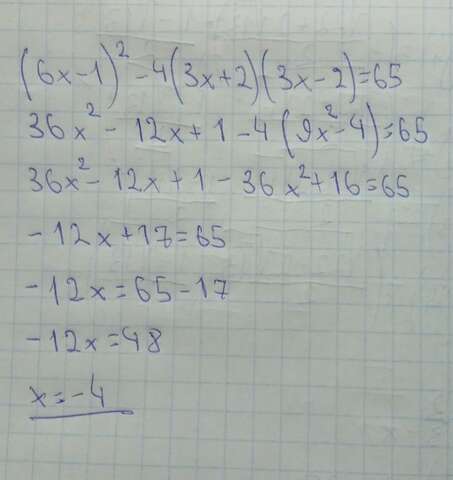 (6x-1)² -4(3x+2)(3x-2)=65
36x² - 12x+1-4(9x²-4)=65
36x²- 12x+1-36x²+16=65
-12x+17=65
-12x=65-17
-12x=48
x=-4